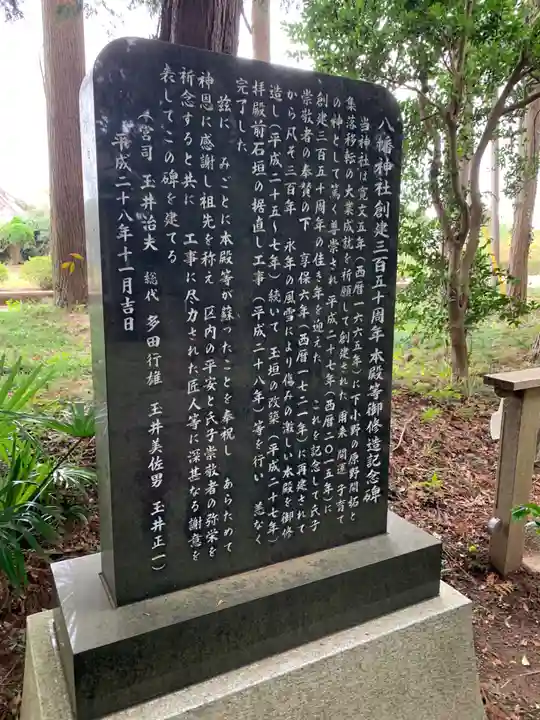 八幡神社創建三百五十周年本殿等御修造記念碑
当神社は寛文五年（西暦一六六五年）に下小野の原野開拓と
集落移転の大業成就を祈願して創建された 爾来 開運 子育て
の神として篤く尊崇され 平成二十七年（西暦二〇一五年）に
創建三百五十周年の佳き年を迎えた これを記念して氏子
崇敬者の奉賛の下 享保六年（西暦一七二一年）に再建されて
から凡そ三百年 永年の風雪により傷みの激しい本殿を御修
造し（平成二十五〜七年）続いて 玉垣の改築（平成二十七年）
拝殿前石垣の据直し工事（平成二十八年）等を行い 恙なく
完了した
茲に みごとに本殿等が蘇ったことを奉祝し あらためて
神恩に感謝し祖先を称え 区内の平安と氏子崇敬者の弥栄を
祈念すると共に 工事に尽力された匠人等に深甚なる謝意を
表してこの碑を建てる
宮司 玉井治夫 総代 多田行雄 玉井美佐男 玉井正一
平成二十八年十一月吉日